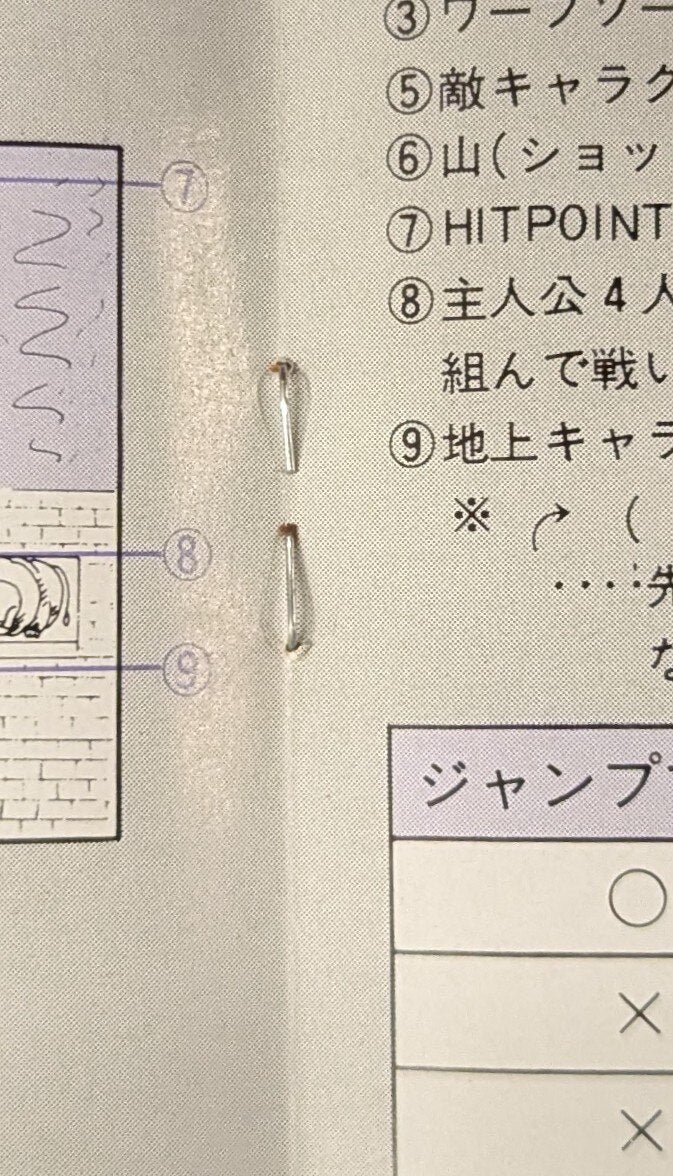 ⑦
⑧
⑨
③ワープゾー
⑤敵キャラク
⑥山(ショッ
⑦HITPOINT
⑧主人公4人
組んで戦い
⑨地上キャラ
※ ↱ (
‥‥先
な
ジャンプ
○
×
×